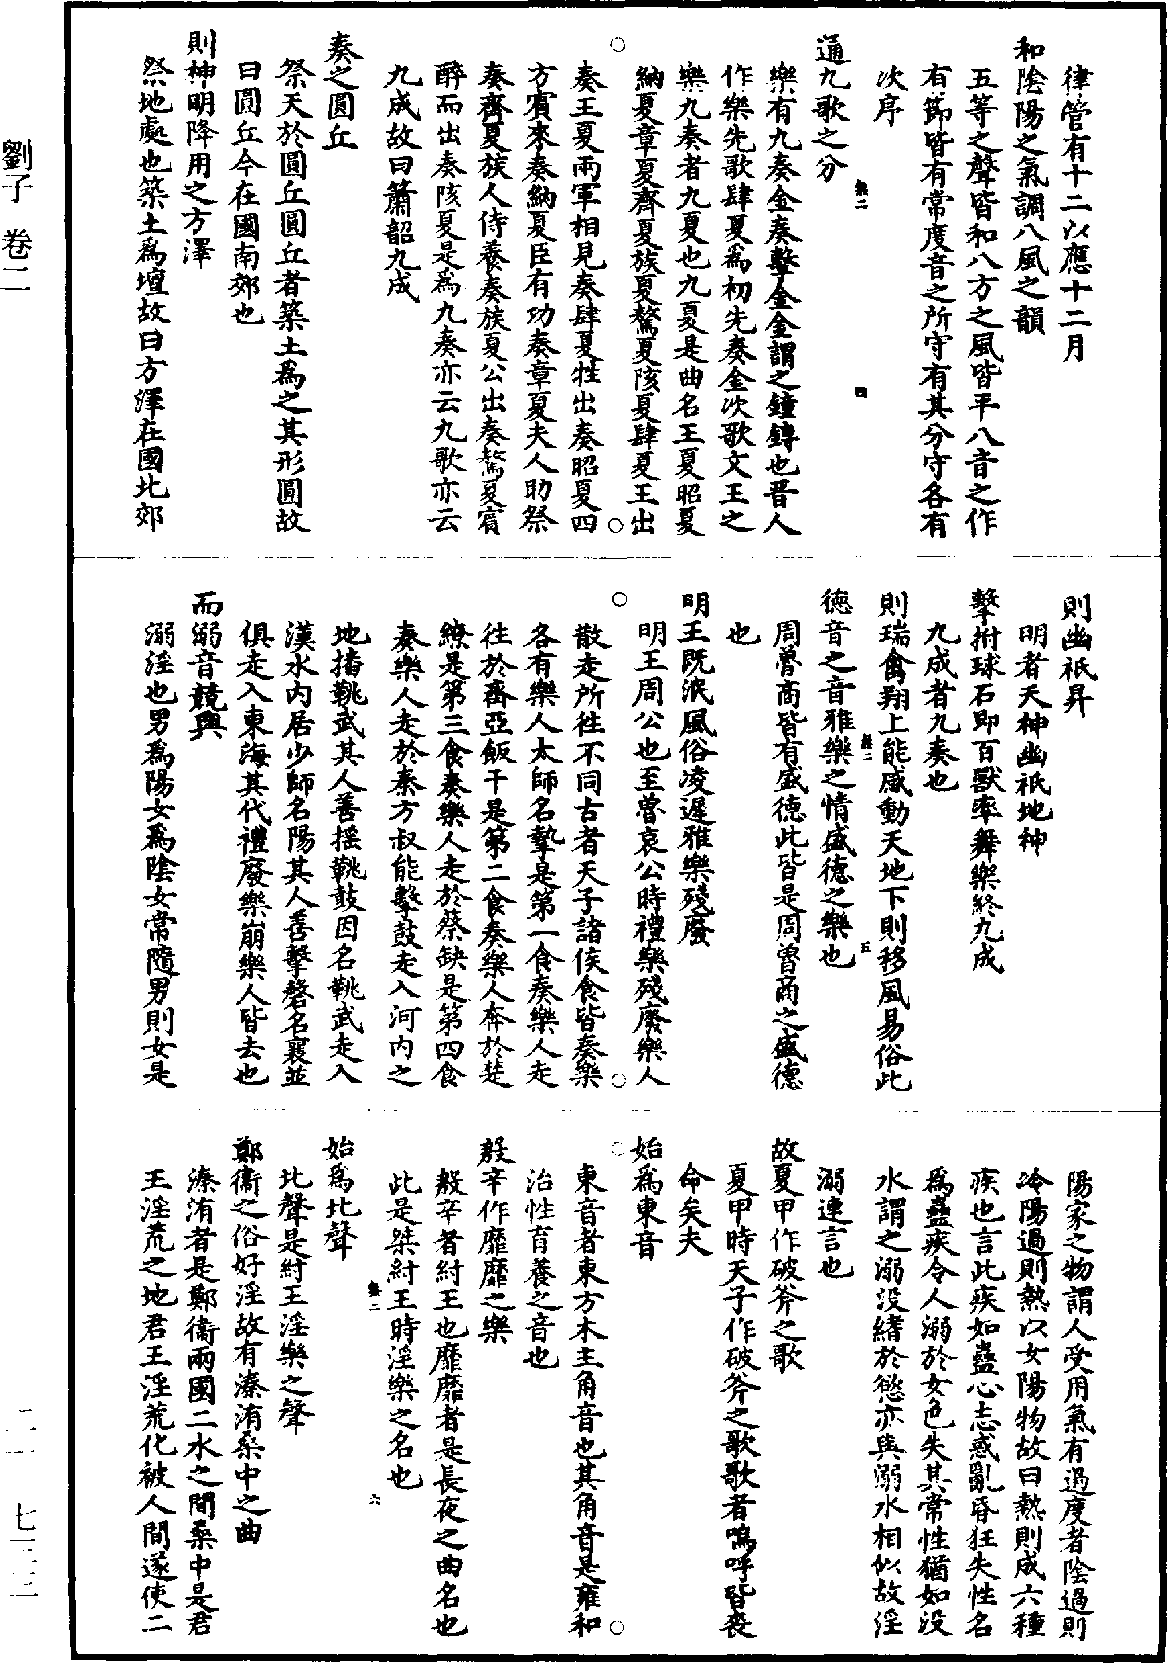 律管有十二以應十二月
和陰陽之氣調八風之韻
五等之聲皆和八方之風皆平八音之作
有節皆有常度音之所守有其分守各有
次序
通九歌之分
樂有九奏金奏擊金金謂之鐘鎛也晋人
作樂先歌肆夏為初先奏金次歌文王之
樂九奏者九夏也九夏是曲名王夏昭夏
納夏章夏齊夏族夏驁夏陔夏肆夏王出
奏王夏兩軍相見奏肆夏牲出奏昭夏四
方賓來奏納夏臣有功奏章夏夫人助祭
奏齊夏族人侍養奏族夏公出奏驁夏賓
醉而出奏陔夏是為九奏亦云九歌亦云
九成故曰簫韶九成
奏之圓丘
祭天於圓丘圓丘者築土為之其形圓故
曰圓丘今在國南郊也
則神明降用之方澤
祭地處也築土為壇故曰方澤在國北郊
則幽祇昇
明者天神幽祇地神
擊拊球石即百獸率舞樂終九成
九成者九奏也
則瑞禽翔上能感動天地下則移風易俗此
德音之音雅樂之情盛德之樂也
周魯商皆有盛德此皆是周魯商之盛德
也
明王既泯風俗凌遲雅樂殘廢
明王周公也至魯哀公時禮樂殘廢樂人
散走所往不同古者天子諸侯食皆奏樂
各有樂人太師名摯是第一食奏樂人走
往於齊亞飯干是第二食奏樂人奔於楚
繚是第三食奏樂人走於蔡缺是第四食
奏樂人走於秦方叔能擊鼓走入河內之
地播鞉武其人善搖鞉鼓因名鞉武走入
漢水內居少師名陽其人善擊磬名襄並
俱走入東海其代禮廢樂崩樂人皆去也
而溺音競興
溺淫也男為陽女為陰女常隨男則女是
陽家之物謂人受用氣有過度者陰過則
冷陽過則熱以女陽物故曰熱則成六種
疾也言此疾如蠱心志惑亂昏狂失性名
為蠱疾令人溺於女色失其常性猶如沒
水謂之溺沒緒於慾亦與溺水相似故淫
溺連言也
故夏甲作破斧之歌
夏甲時天子作破斧之歌歌者嗚呼皆喪
命矣夫
始為東音
東音者東方木主角音也其角音是雍和
治性育養之音也
殷辛作靡靡之樂
殷辛者紂王也靡靡者是長夜之曲名也
此是桀紂王時淫樂之名也
始為北聲
北聲是紂王淫樂之聲
鄭衞之俗好淫故有溱洧桑中之曲
溱洧者是鄭衞兩國二水之間桑中是君
王淫荒之地君王淫荒化被人間遂使二
劉子 卷二
二一 七三三